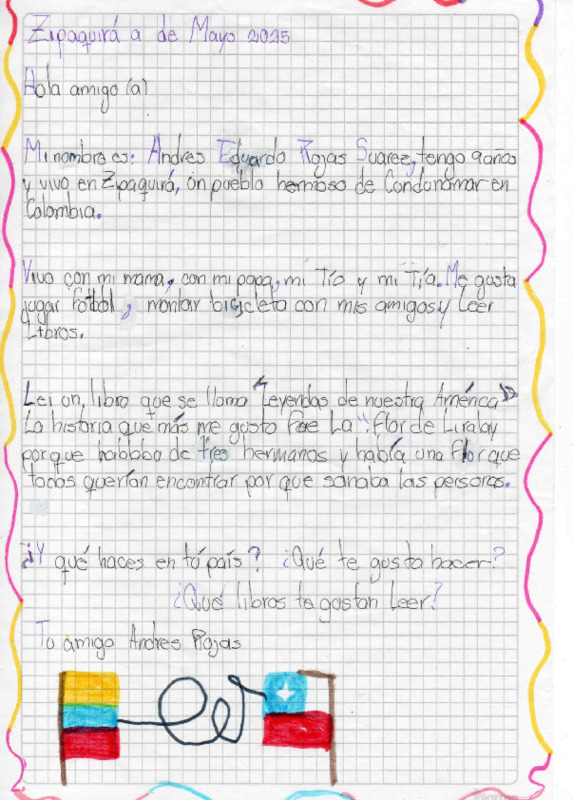 Zipaquirá a de Mayo 2025
Hola amigo (a)
Mi nombre es: Andres Eduardo Rojas Suarez, tengo 9 años
y vivo en Zipaquirá, un pueblo hermoso de Condunamar en
Colombia.
Vivo con mi mama, con mi papa, mi Tío y mi Tía. Me gusta
jugar fotbol, montar bicicleta con mis amigos y Leer
Libros.
Lei un, libro que se llama "Leyendas de nuestra América"
La historia que más me gusto fue La "flor de Liralay
porque habbba de tres hermanos y había una flor que
todos querían encontrar por que sanaba las personas.
¿Y qué haces en tú país? ¿Qué te gusta hacer?
¿Qué libros te gustan Leer?
Tu amigo Andres Rojas